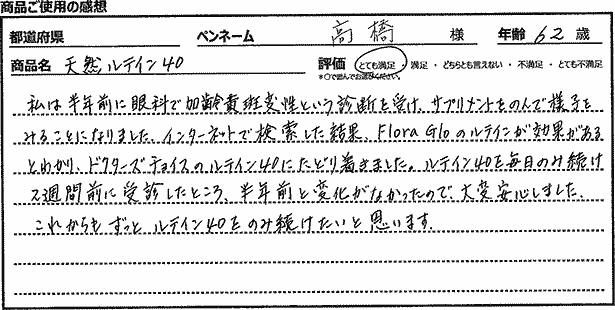 商品ご使用の感想
都道府県 ペンネーム 高橋 様 年齢 62 歳
商品名 天然ルテイン40 評価 とても満足・満足・どちらとも言えない・不満足・とても不満足
*○で囲んでお選びください。
私は半年前に眼科で加齢黄斑変性という診断を受け、サプリメントをのんで様子を
みることになりました。インターネットで検索した結果、Flora Gloのルテインが効果がある
とわかり、ドクターズチョイスのルテイン40にたどり着きました。ルテイン40を毎日のみ続け
2週間前に受診したところ、半年前と変化がなかったので、大変安心しました。
これからもずっとルテイン40をのみ続けたいと思います。